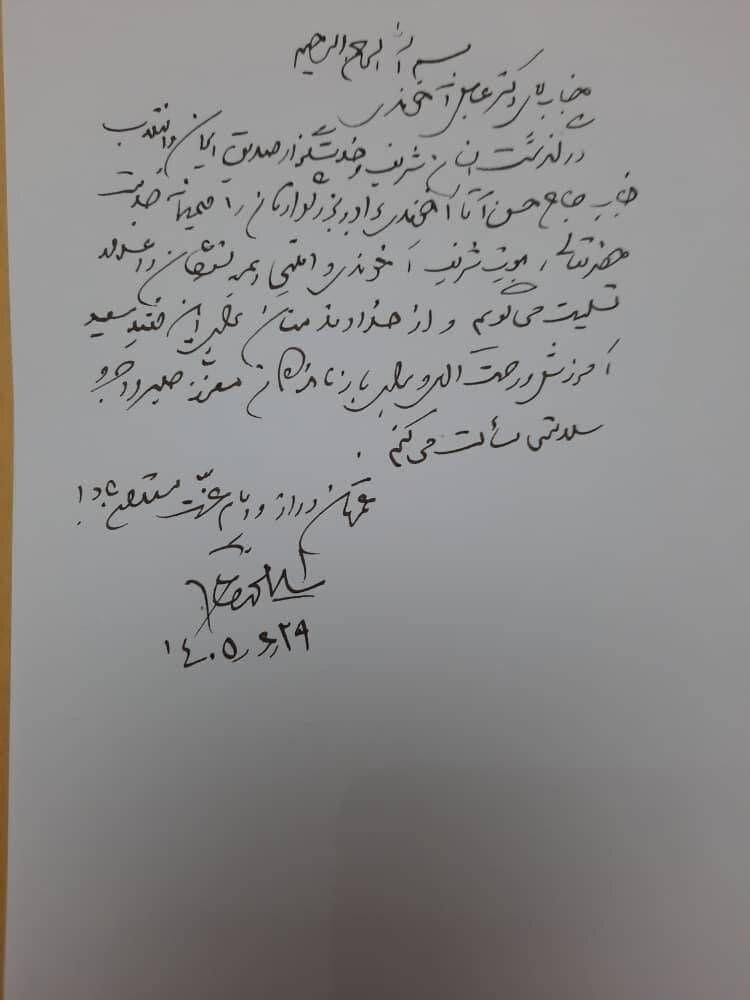 بسم الله الرحمن الرحیم
جناب آقای دکتر عباس آخوندی
درگذشت انسان شریف و خدمتگزار صدیق ایران و انقلاب
جناب حاج حسن آقا آخوندی برادر بزرگوارتان را صمیمانه خدمت
حضرتعالی، بیت شریف آخوندی و همه بستگان داغدار
تسلیت می‌گویم و از خداوند منان برای آن فقید سعید
آمرزش و رحمت الهی و برای بازماندگان معزز صبر و اجر و
سلامتی مسألت می‌کنم.
عمرتان دراز و ایام عزت مستدام باد!
۱۴۰۵٫۶٫۲۹